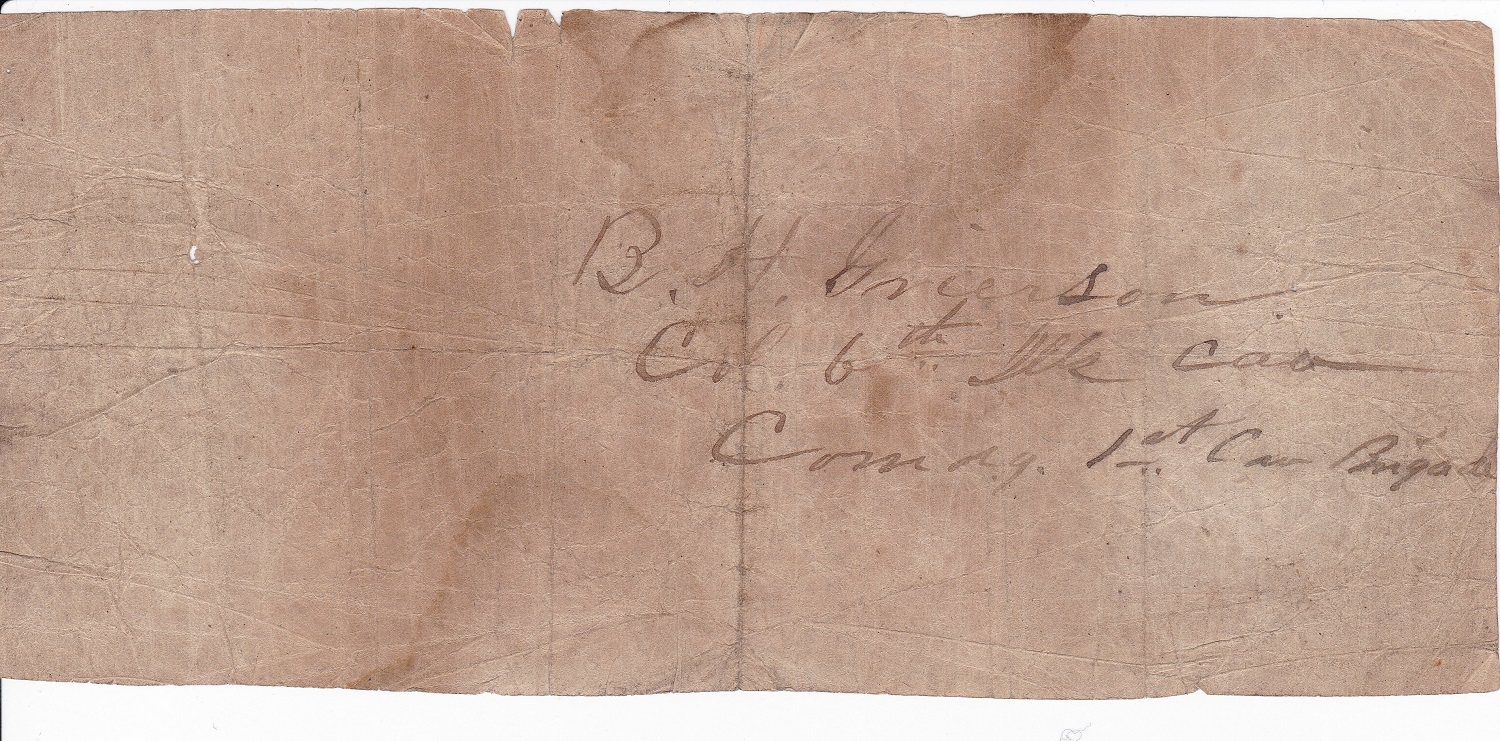 B. H. Grierson
Col. 6th Ills Cav
Comdg. 1st Cav Brigade